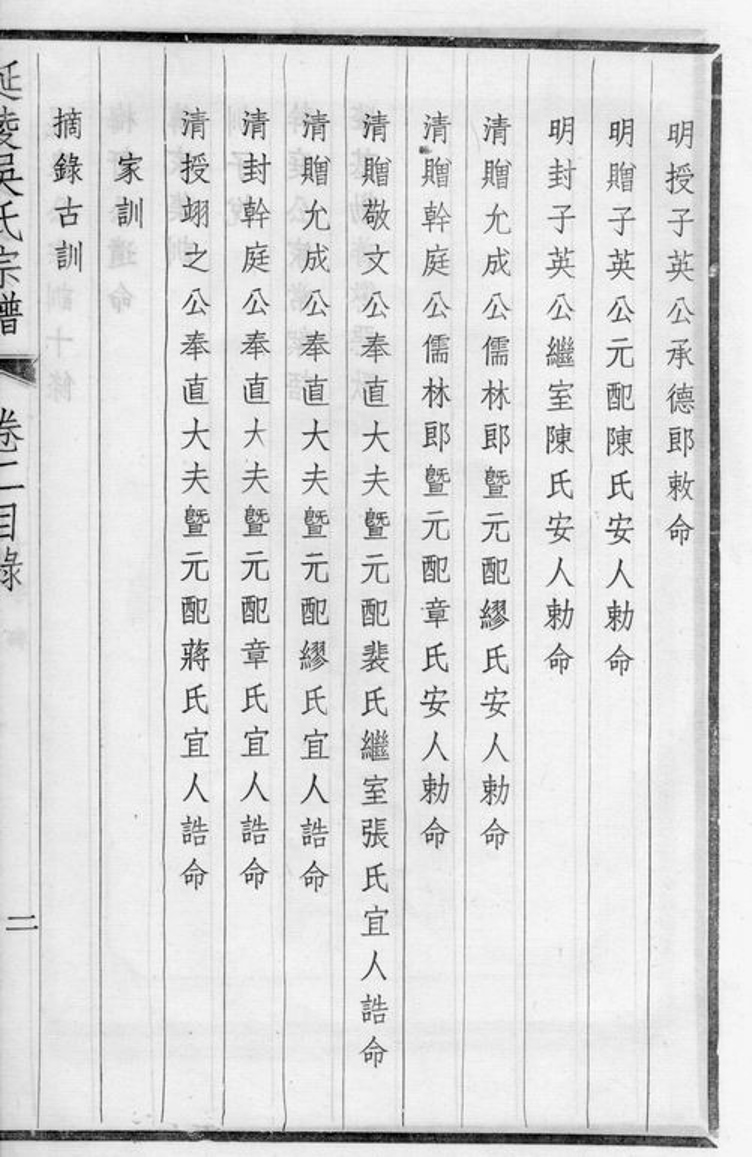 明授子英公承德郎敕命
明贈子英公元配陳氏安人勅命
明封子英公繼室陳氏安人勅命
清贈允成公儒林郎暨元配繆氏安人勅命
清贈幹庭公儒林郎暨元配章氏安人勅命
清贈敬文公奉直大夫暨元配裴氏繼室張氏宜人誥命
清贈允成公奉直大夫暨元配繆氏宜人誥命
清封幹庭公奉直大夫暨元配章氏宜人誥命
清授翊之公奉直大夫暨元配蔣氏宜人誥命
家訓
摘錄古訓
延陵吳氏宗譜 卷二目錄 二